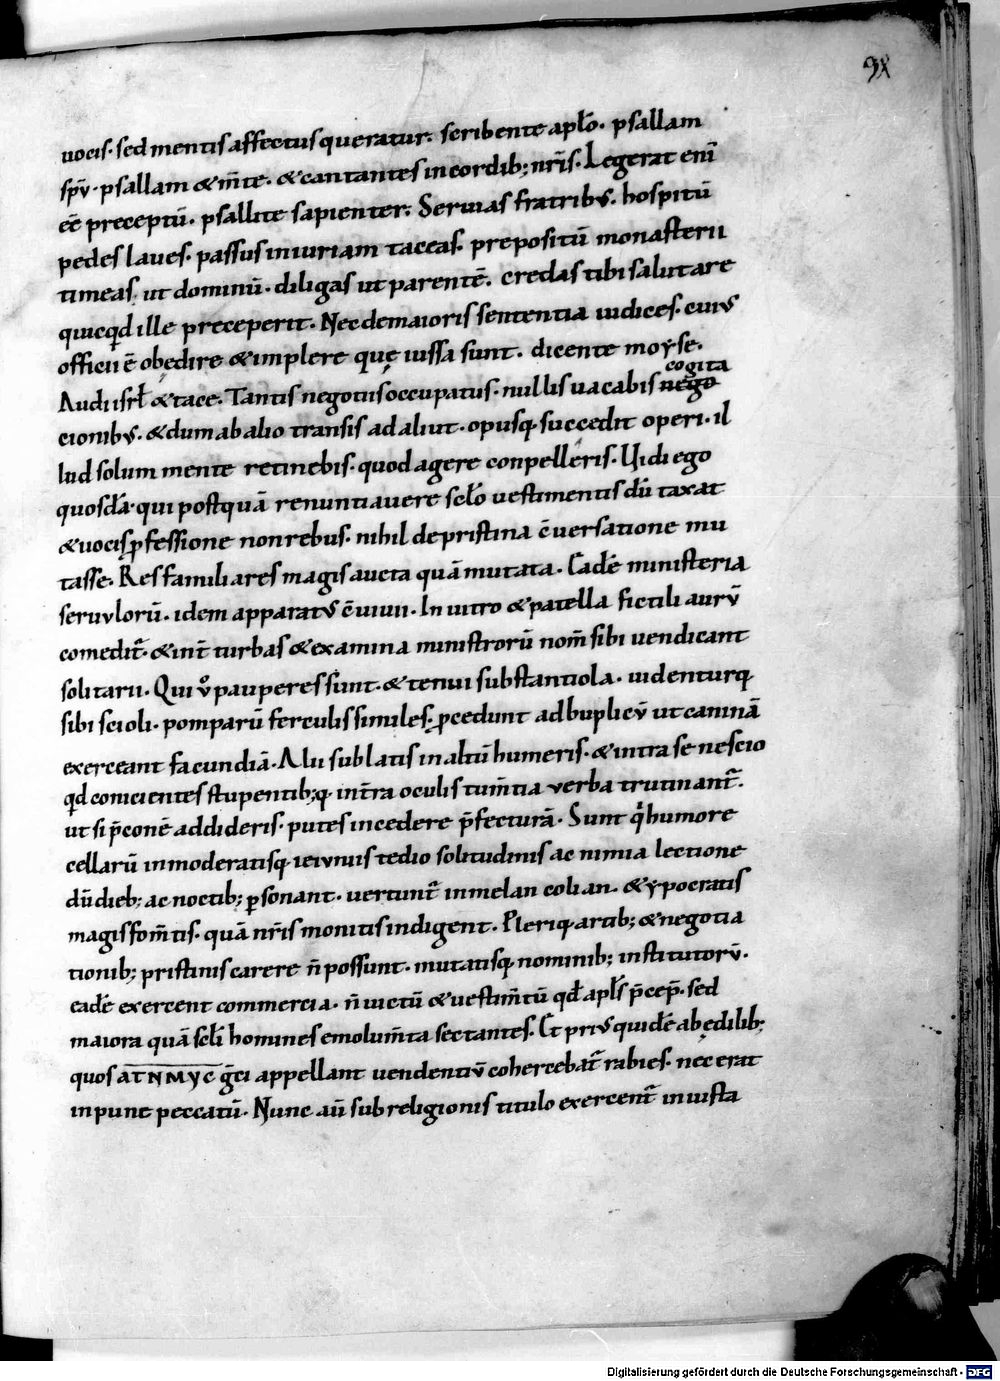 9x
uocis· sed mentis affectus queratur· scribente apło· psallam
spū· psallam &m̄te· &cantantes incordib; nr̄is· Legerat enī
eē preceptū· psallite sapienter· Seruias fratribꝰ· hospitū
pedes laues· passus iniuriam taceas· prepositū monasterii
timeas ut dominū· diligas ut parentē· credas tibi salutare
quicqd ille preceperit· Nec demaioris sententia iudices· cuiꝰ
officii ē obędire &implere quę iussa sunt· dicente moyse·
Audi isrł &tace· Tantis negotiis occupatus· nullis uacabis nego cogita
cionibꝰ· &dum ab alio transis ad aliut· opusq· succedit operi· il
lud solum mente retinebis· quod agere conpelleris· Uidi ego
quosdā· qui postquā renuntiauere scło uestimentis dū taxat
&uocis ꝓfessione non rebus· nihil de pristina c̄uersatione mu
tasse· Res familiares magis aucta quā mutata· Eadē ministeria
seruulorū· idem apparatꝰ c̄uiuii· In uitro &patella fictili aurū
comedit᷑· &int̄ turbas &examina ministrorū nom̄ sibi uendicant
solitarii· Qui v̊ pauperes sunt· &tenui substantiola· uidenturq·
sibi scioli· pomparū ferculis similes ꝓcedunt ad buplicū ut caninā
exerceant facundiā· Alii sublatis in altū humeris· &intra se nescio
qd conicientes stupentib;q· int̄ra oculis tum̄tia verba trutinant᷑·
ut si p̄conē addideris· putes incedere p̄fecturā· Sunt qͥ humore
cellarū inmoderatisq· ieiuniis tedio solitudinis ac nimia lectione
dū dieb; ac noctib; ꝑsonant· uertunt᷑ in melan colian· &ypocratis
magis fom̄tis· quā nr̄is monitis indigent· Pleriq· artib; &negotia
tionib; pristinis carere n̄ possunt· mutatisq· nominib; institutorū·
eadē exercent commercia· n̄ uictū &uestim̄tū qd̄ apłs p̄cep̄· sed
maiora quā scłi homines emolum̄ta sectantes· Et priꝰ quidē ab ędilib;
quos ATNMYC gͣci appellant uendentiū cohercebat᷑ rabies· nec erat
inpune peccatū· Nunc aū sub religionis titulo exercent᷑ iniusta
Digitalisierung gefördert durch die Deutsche Forschungsgemeinschaft - DFG